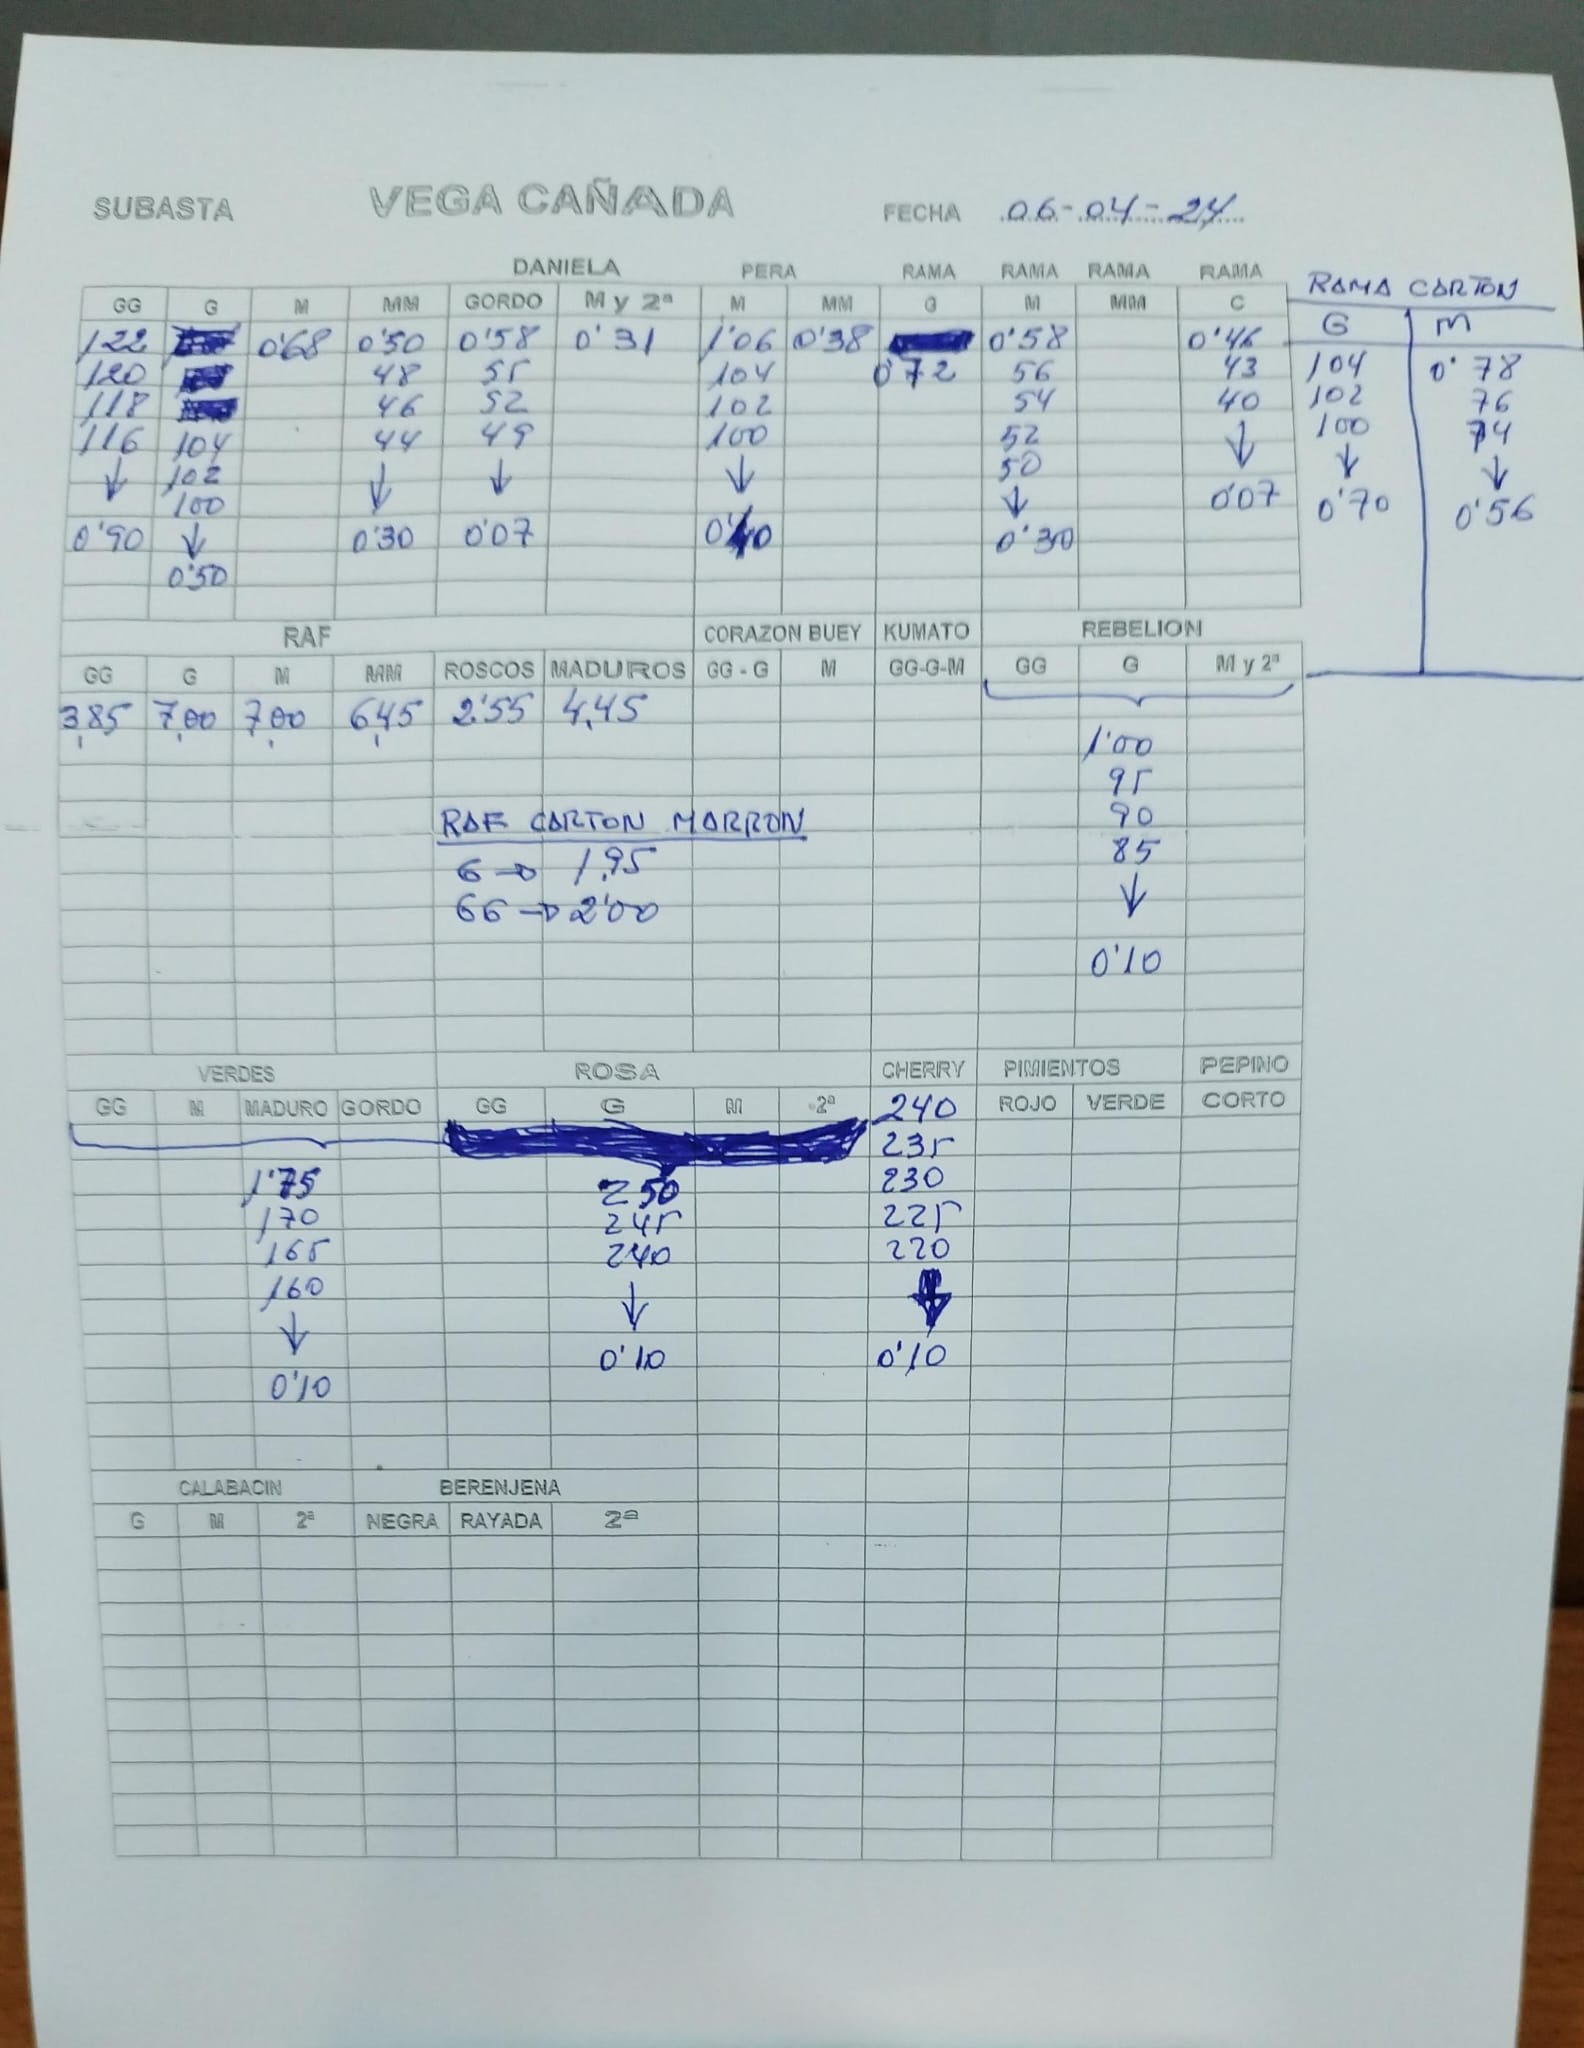 SUBASTA VEGA CAÑADA FECHA 06-04-24
DANIELA PERA RAMA RAMA RAMA RAMA RAMA CARTON
GG G M MM GORDO M y 2ª M MM G M MM C G M
122 0'68 0'50 0'58 0'31 1'06 0'38 0'58 0'46
120 48 55 104 0'72 56 43 104 0'78
118 46 52 102 54 40 102 76
116 104 44 49 100 52 ↓ 100 74
↓ 102 ↓ ↓ ↓ 50 ↓ ↓
100 ↓ 0'07 0'70 0'56
0'90 ↓ 0'30 0'07 0'40 0'30
0'50
RAF CORAZON BUEY KUMATO REBELION
GG G M MM ROSCOS MADUROS GG - G M GG-G-M GG G M y 2ª
3,85 7,00 7,00 6,45 2'55 4,45
1'00
95
RAF CARTON MARRON 90
G → 1,95 85
GG → 2'00 ↓
0'10
VERDES ROSA CHERRY PIMIENTOS PEPINO
GG M MADURO GORDO GG G M 2ª 240 ROJO VERDE CORTO
235
1'75 250 230
170 245 225
165 240 220
160 ↓ ↓
↓ 0'10 0'10
0'10
CALABACIN BERENJENA
G M 2ª NEGRA RAYADA 2ª